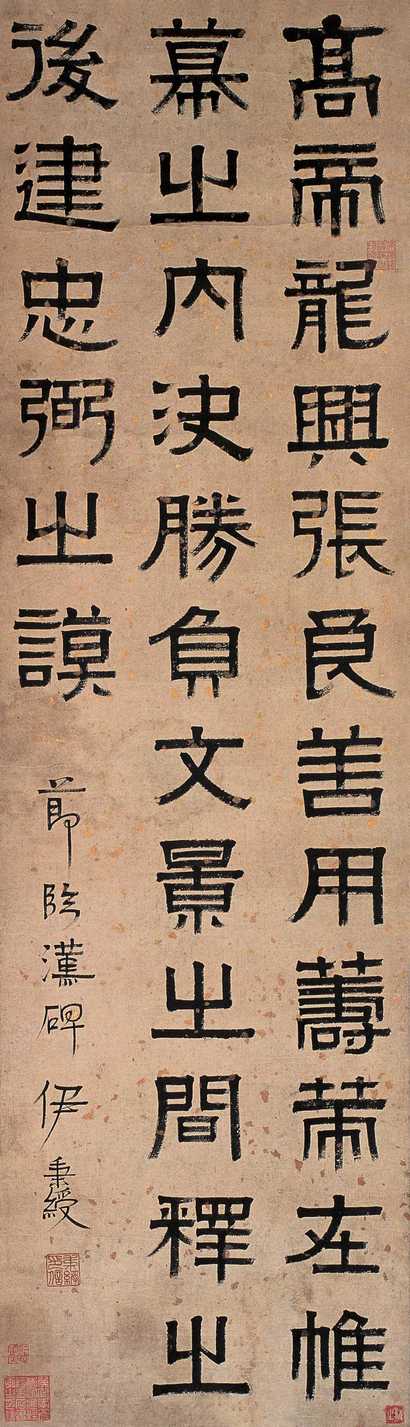 高帝龍興張良善用籌策在帷
幕之內決勝負文景之間釋之
後建忠弼之謨
節臨漢碑 伊秉綬